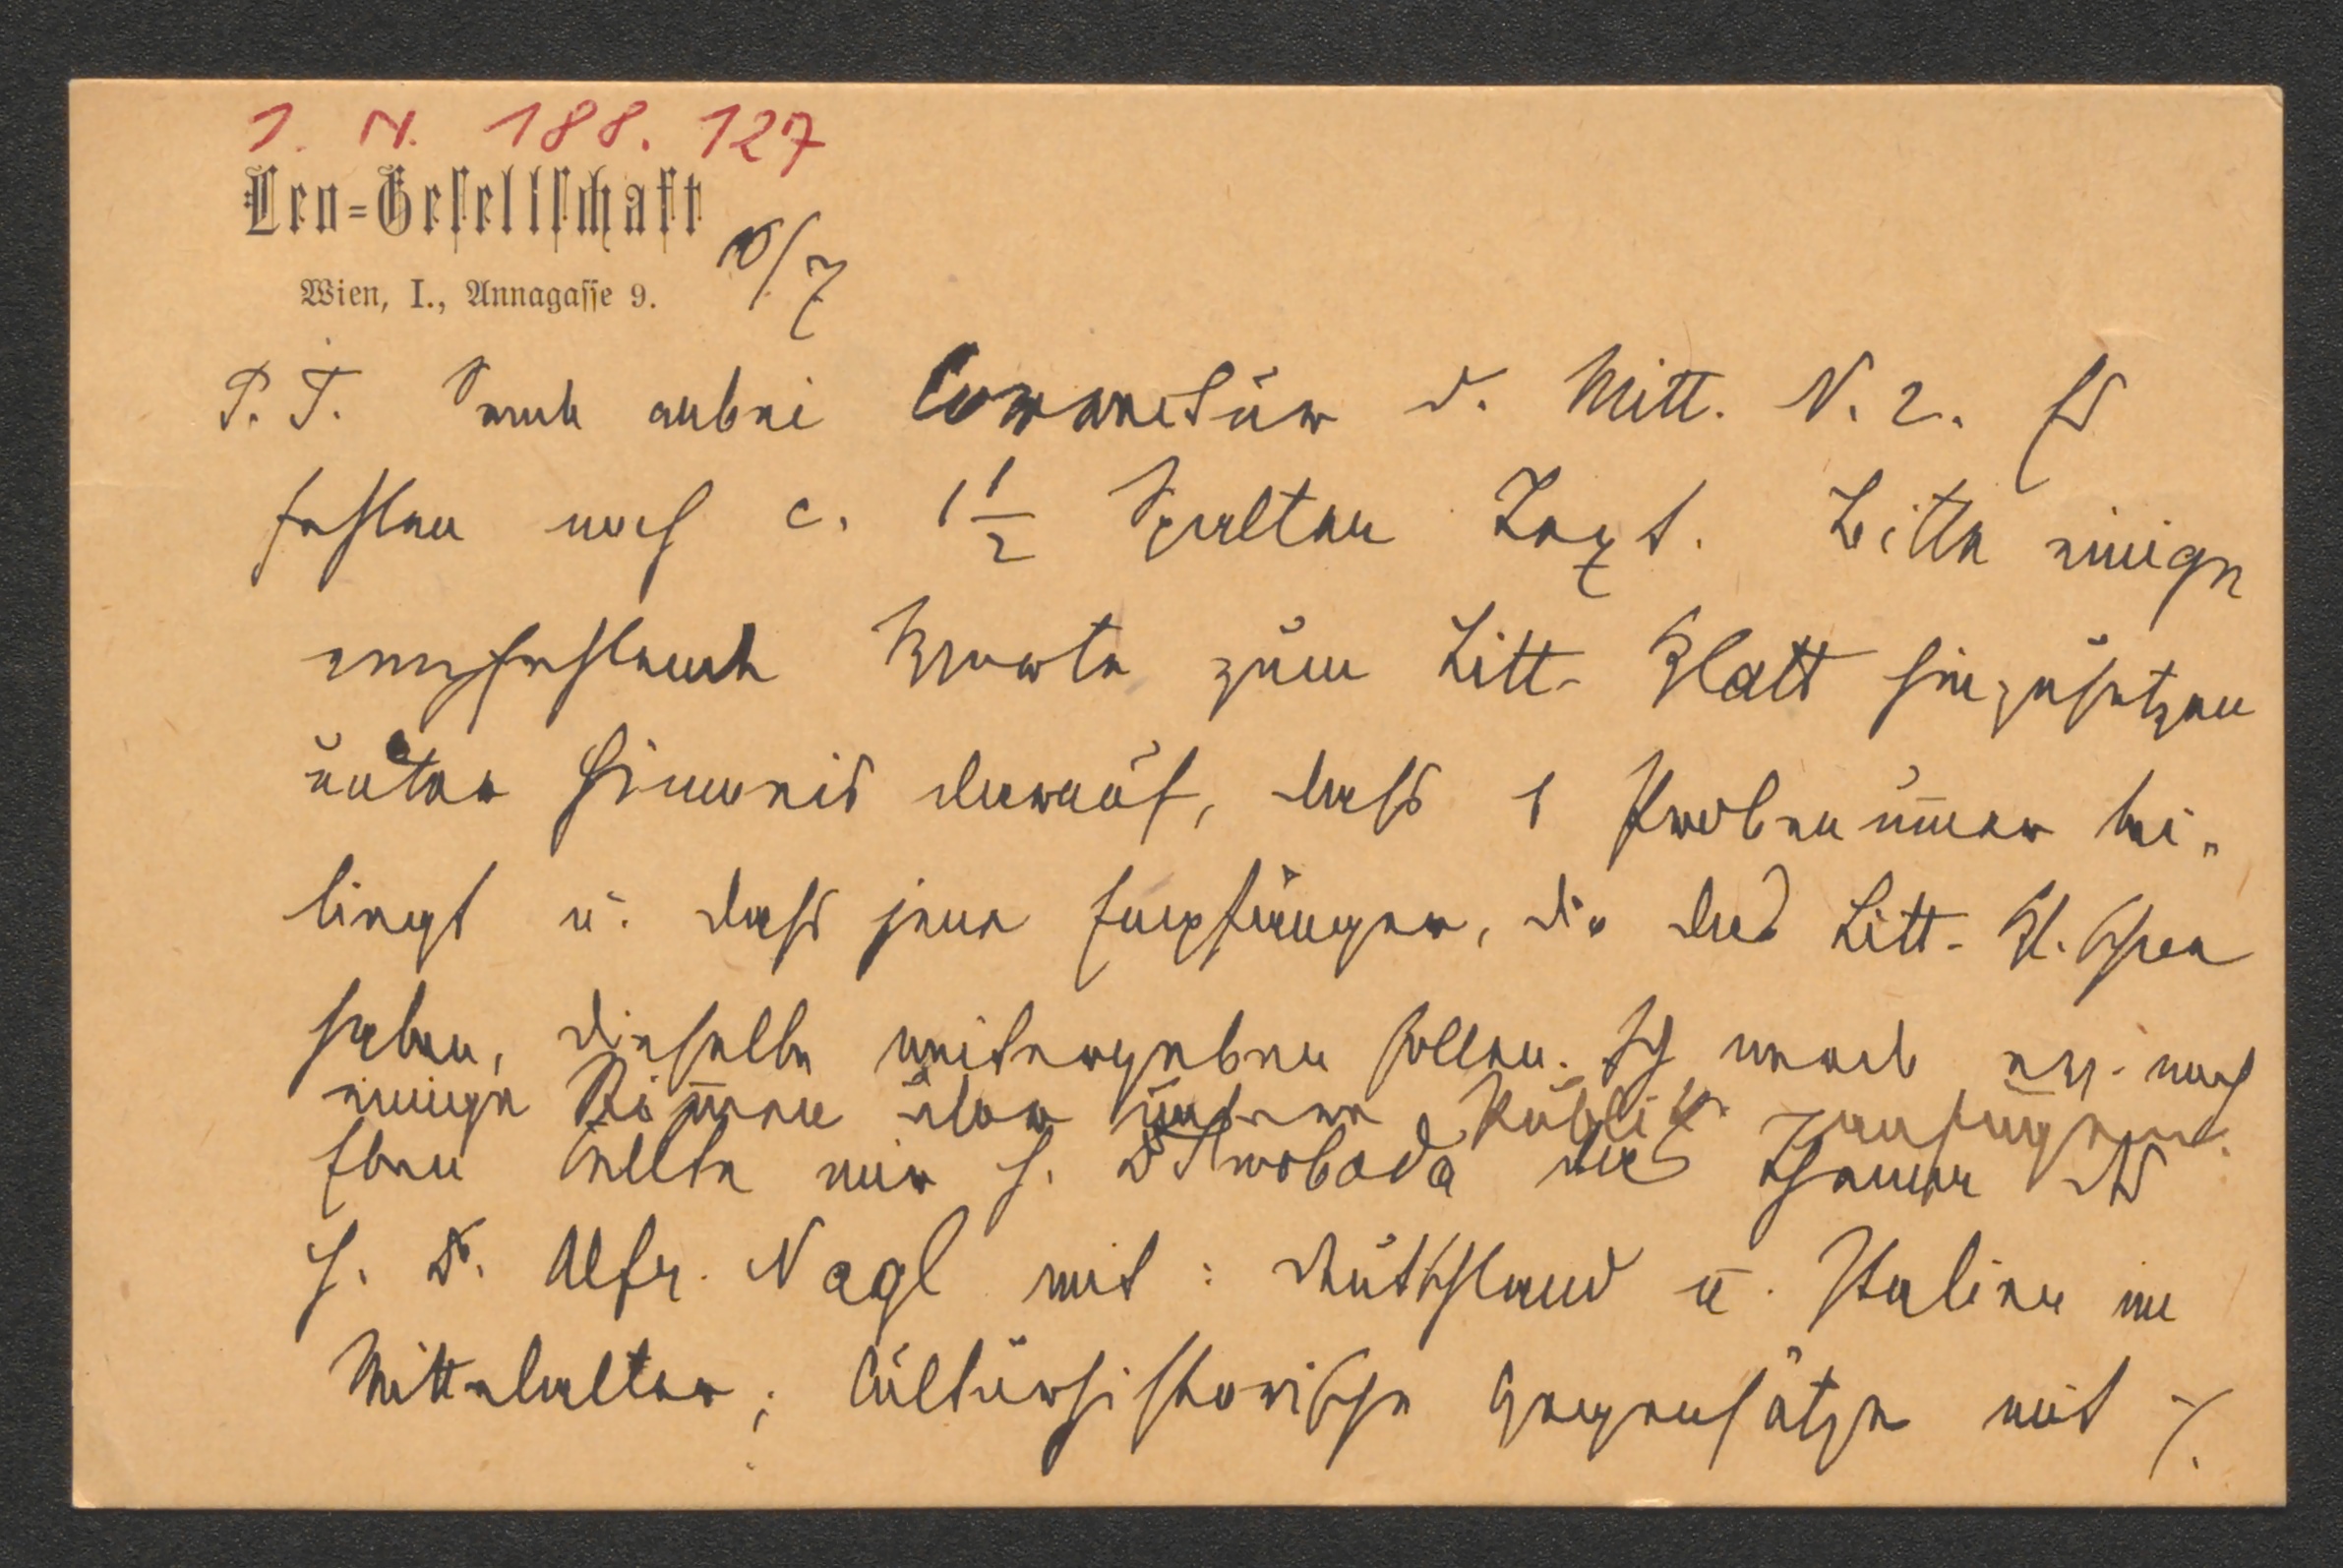 I. N. 188.127
Leo-Gesellschaft
Wien, I., Annagasse 9.
10/7
P. T. Sende anbei Correctur d. Mitt. N. 2. Es
fehlen noch c. 1 1/2 Spalten Text. Bitte einige
empfehlende Worte zum Litt. Blatt hinzusetzen
unter Hinweis darauf, dass 1 Probenummer bei-
liegt u. dass jene Empfänger, die das Litt. Bl. schon
haben, dieselbe weitergeben sollen. Ich werde noch
einige über unsere Public.
Eben teilte mir H. Dr Swoboda das Thema des
H. Dr. Alfr. Nagl mit: Deutschland u. Italien im
Mittelalter; Culturhistorische Gegensätze mit ./.